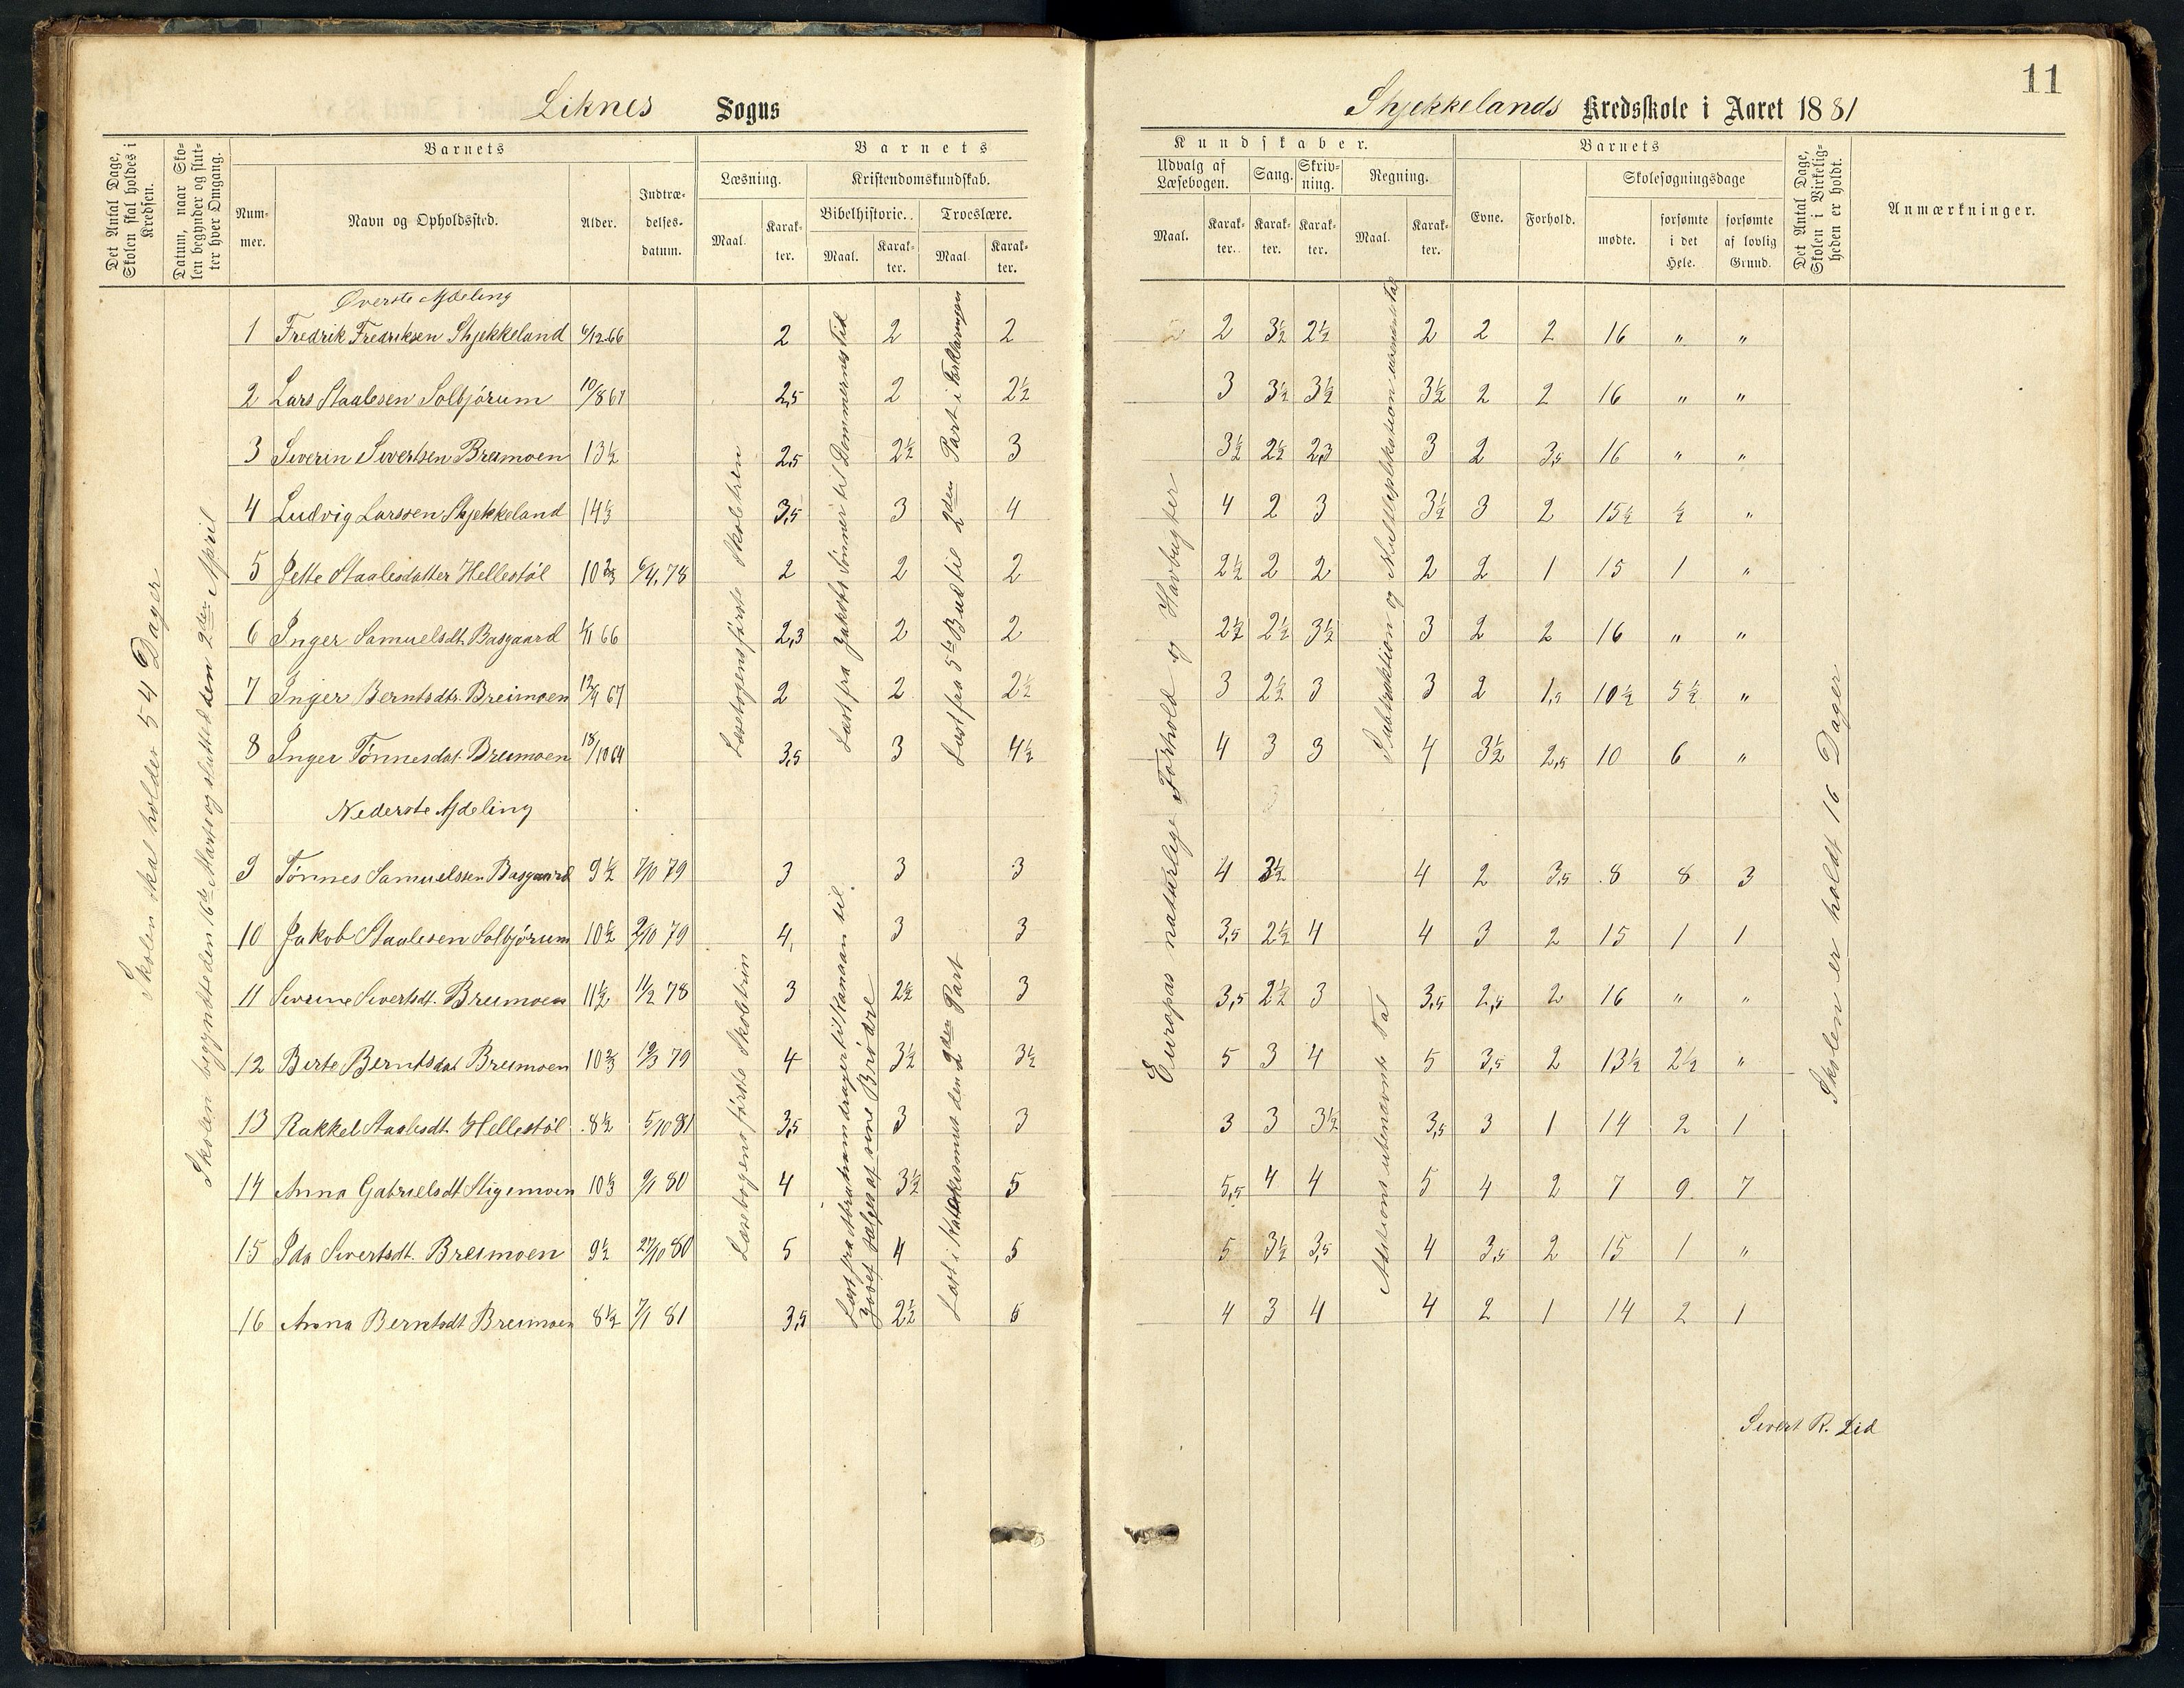 11
Liknes Sogns
Skjekkelands Kredsskole i Aaret 1881
Det Antal Dage, Skolen skal holdes i Kredsen.
Datum, naar Skolen begynder og slutter hver Omgang.
Barnets
Nummer.
Navn og Opholdssted.
Alder.
Indtrædelsesdatum.
Barnets
Læsning.
Maal.
Karakter.
Kristendomskundskab.
Bibelhistorie.
Maal.
Karakter.
Troeslære.
Maal
Karakter.
Kundskaber.
Udvalg af Læsebogen.
Maal.
Karakter.
Sang.
Karakter.
Skrivning.
Karakter.
Regning.
Maal.
Karakter.
Barnets
Evne.
Forhold.
Skolesøgningsdage
mødte.
forsømte i det Hele.
forsømte af lovlig Grund.
Det Antal Dage, Skolen i Virkeligheden er holdt.
Anmærkninger.
Skolen skal holdes 54 Dager
Skolen begyndte den 16de Marts og sluttet den 2den April
Øverste Afdeling
1 Fredrik Fredriksen Skjekkeland 6/12 66 2 2 2 2 3½ 2½ 2 2 2 16 " "
2 Lars Staalesen Solbjörum 10/8 67 2,5 2 2½ 3 3½ 3½ 3½ 2 2 16 " "
3 Severin Sivertsen Breimoen 13½ 2,5 2½ 3 3½ 2½ 2,3 3 2 3,5 16 " "
4 Ludvig Larssen Skjekkeland 14⅓ 3,5 3 4 4 2 3 3½ 3 2 15½ ½ "
5 Jette Staalesdatter Hellestöl 10⅔ 6/4 78 2 2 2 2½ 2 2 2 2 1 15 1 "
6 Inger Samuelsdt. Basgaard 66 2,3 2 2 2½ 2½ 3½ 3 2 2 16 " "
7 Inger Berntsdtr. Breimoen 12/9 67 2 2 2½ 3 2½ 3 3 2 1,5 10½ 5½ "
8 Inger Tönnesdat. Breimoen 18/10 64 3,5 3 4½ 4 3 3 4 3½ 2,5 10 6 "
Læsebogens förste Skoletrin
Læst fra Jakobs Sönner til Dommernes Tid
Læst fra 5te Bud til 2den Part i Forklaringen
Europas naturlige Forhold og Havbugter
Subtraktion og Multiplikation ubenævnte Tal
Nederste Afdeling
9 Tönnes Samuelssen Basgaard 9½ 7/10 79 3 3 3 4 3½ 4 2 3,5 8 8 3
10 Jakob Staalesen Solbjörum 10½ 2/10 79 4 3 3 3,5 2½ 4 4 3 2 15 1 1
11 Sivertsdt. Breimoen 11½ 11/2 78 3 2½ 3 3,5 2½ 3 3,5 2,5 2 16 " "
12 Berte Berntsdat Breimoen 10⅔ 19/3 79 4 3½ 3½ 5 3 4 5 3,5 2 13½ 2½ "
13 Rakkel Staalesdt. Hellestöl 8½ 5/10 81 3,5 3 3 3 3 3½ 3,5 3 1 14 2 1
14 Anna Gabrielsdt Stigemoen 10⅓ 9/1 80 4 3½ 5 5,5 4 4 5 4 2 7 9 7
15 Ida Sivertsdt. Breimoen 9½ 27/10 80 5 4 5 5 3½ 3,5 4 3,5 2 15 1 "
16 Anna Berntsdt Breimoen 8½ 7/1 81 3,5 2½ 5 4 3 4 4 2 1 14 2 1
Læsebogens förste Skoletrin
Læst fra Abraham drager til Kanaan til Josef sælges af sine Brödre
Læst i Katekismus den 2den Part
Addition ubenævnte Tal
Skolen er holdt 16 Dager
Sivert R. Lid